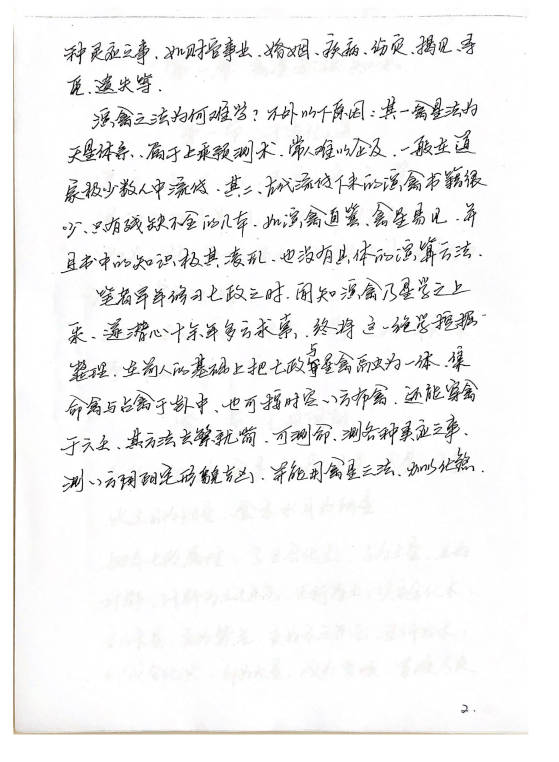 种灵应之事、如财官事业、婚姻、疾病、伤灾、揭见、寻
区、遗失等.
演禽之法为何难学？不外以下原因：其一禽星法为
天星体系、属于上乘预测术、常人难以企及、一般在道
家极少数人中流传.其二、古代流传下来的演禽书籍很
少、只有残缺不全的几本.如演禽通纂、禽星易见、并
且书中的知识极其凌乱、也没有具体的演算方法.
笔者早年修习七政之时、闻知演禽乃星学之上
乘、遂潜心十余年多方求索、终将这一绝学挖掘
整理、在前人的基础上把七政与星禽融为一体、集
命禽与占禽于卦中、也可按时空八方布禽、还能穿禽
于六壬、其方法去繁就简、可测命、测各种灵应之事、
测八方阴阳宅形貌吉凶、并能用禽星之法、加以化煞.
2.